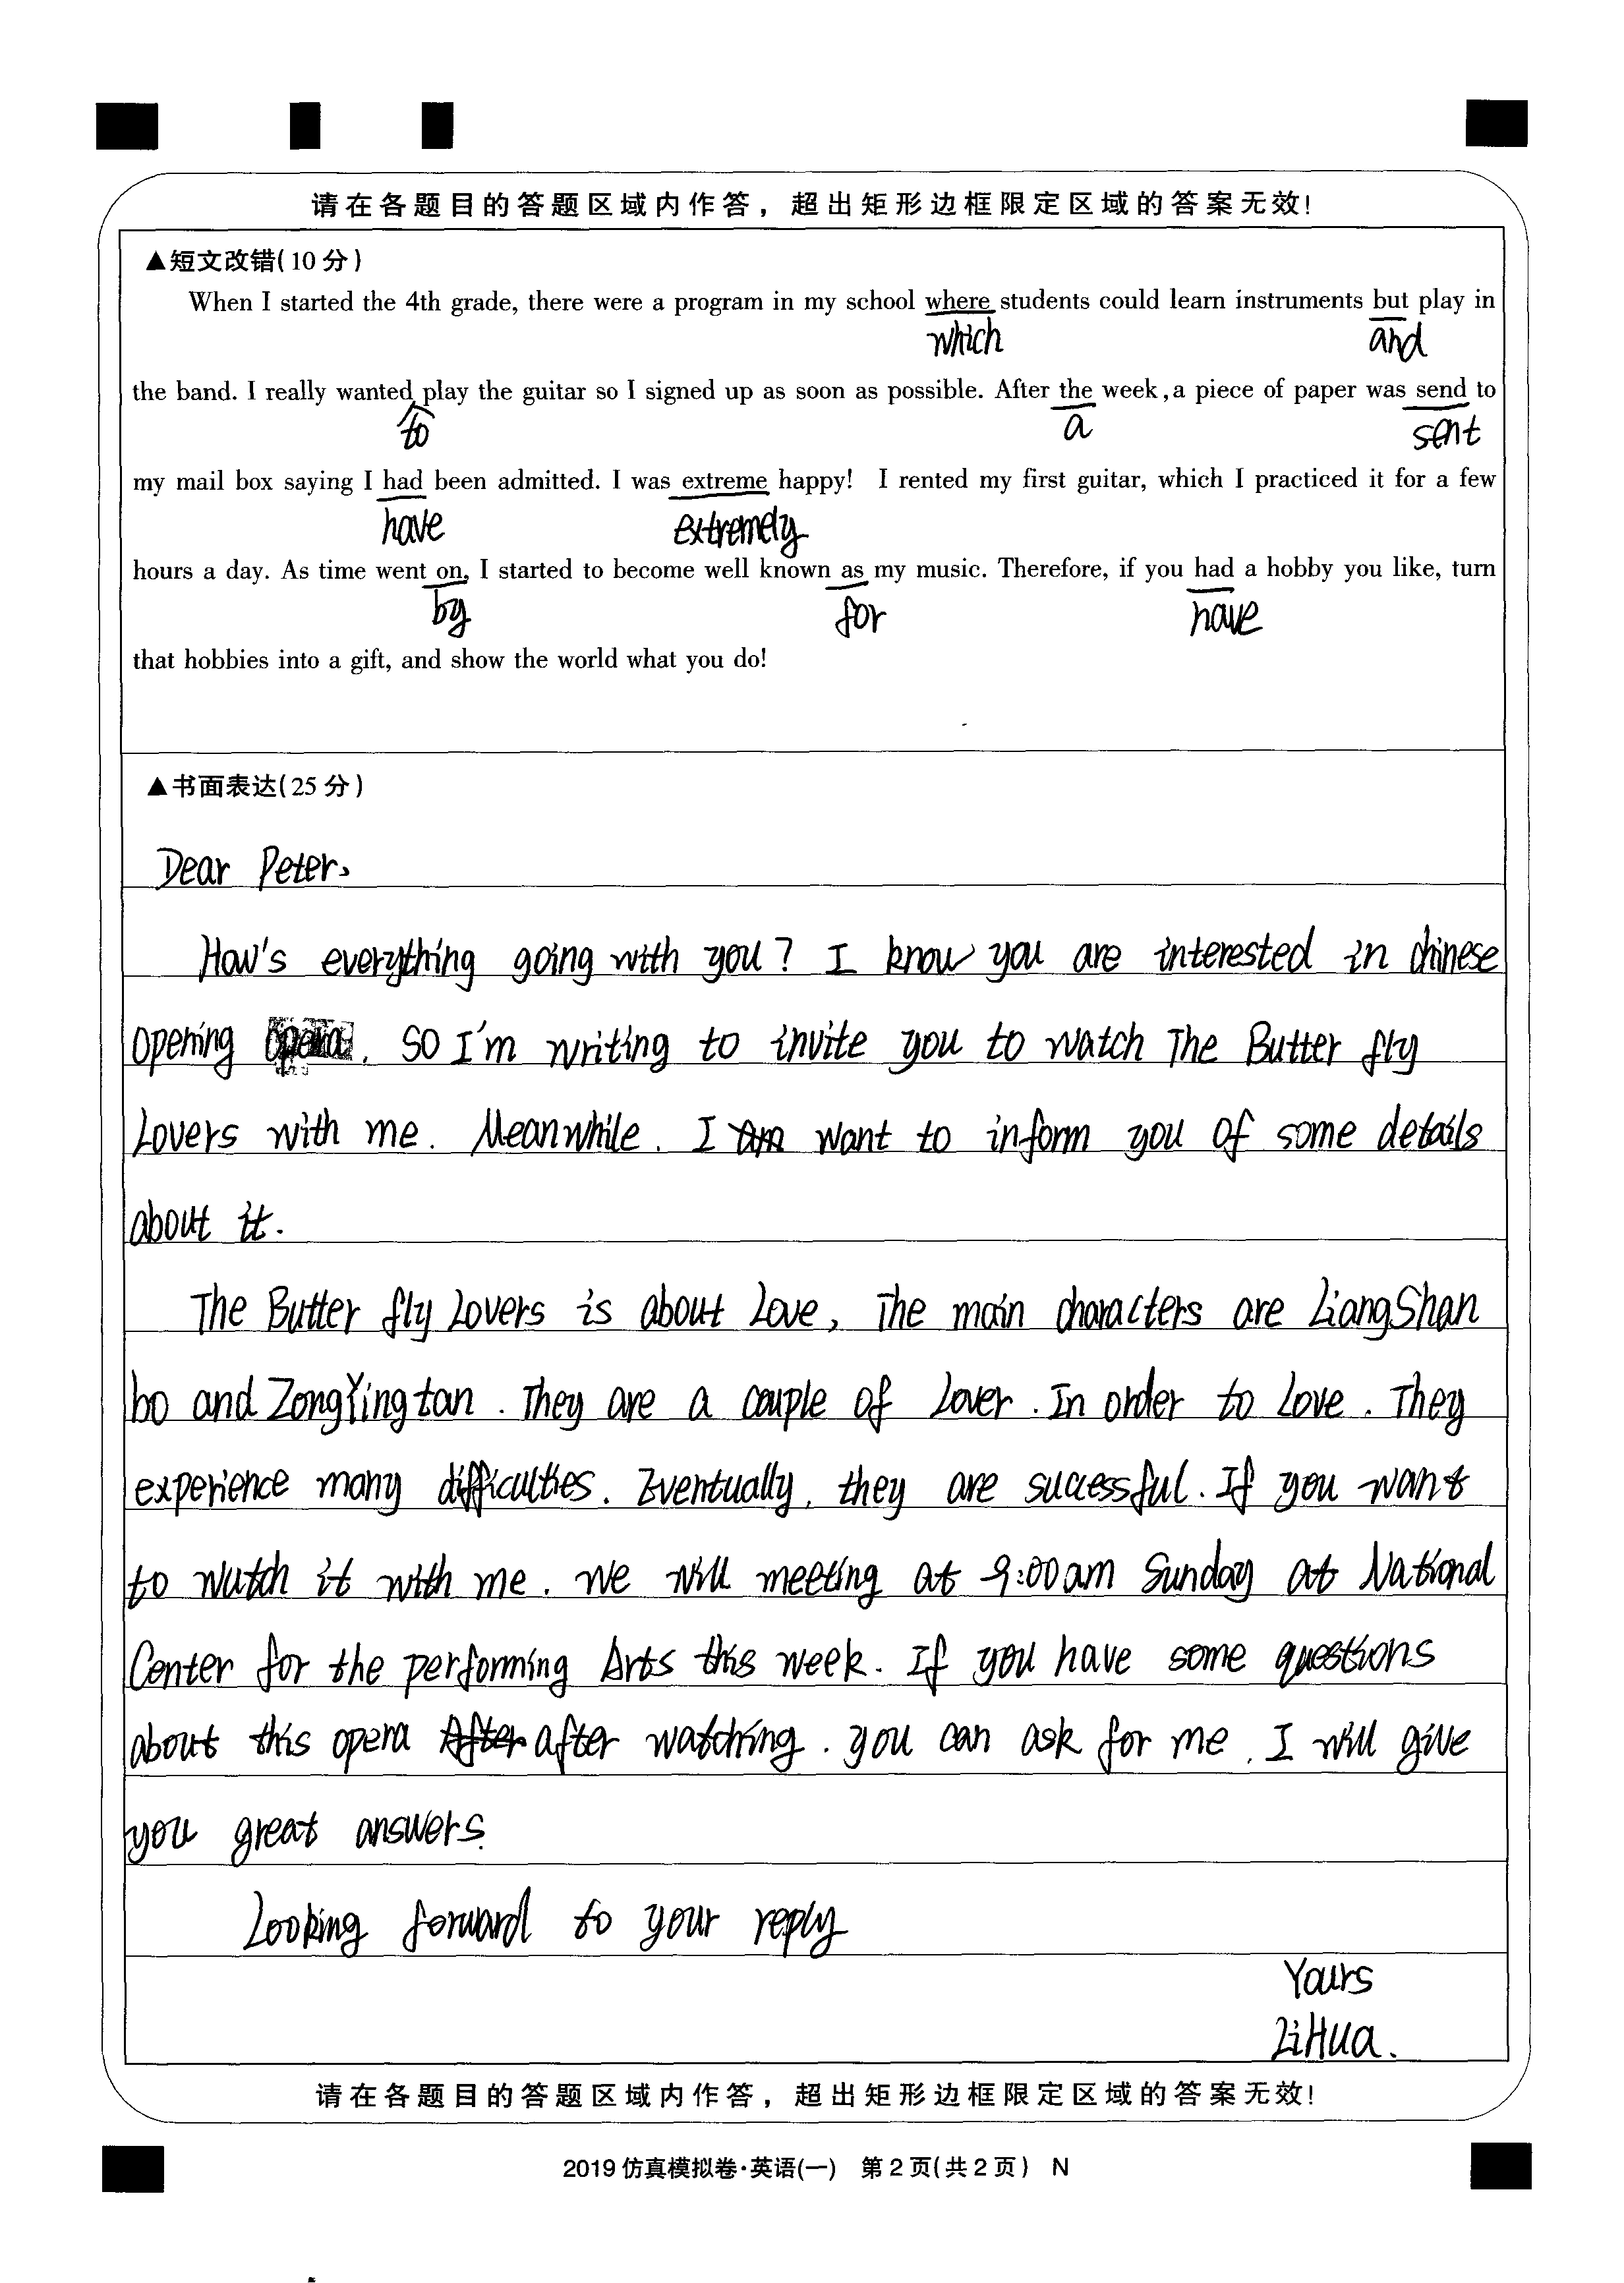 请在各题目的答题区域内作答，超出矩形边框限定区域的答案无效!
▲短文改错(10分)
When I started the 4th grade, there were a program in my school where students could learn instruments but play in
which and
the band. I really wanted play the guitar so I signed up as soon as possible. After the week, a piece of paper was send to
to a sent
my mail box saying I had been admitted. I was extreme happy! I rented my first guitar, which I practiced it for a few
have extremely
hours a day. As time went on, I started to become well known as my music. Therefore, if you had a hobby you like, turn
by for have
that hobbies into a gift, and show the world what you do!
▲书面表达(25分)
Dear Peter,
How's everything going with you? I know you are interested in chinese
opening opera. SO I'm writing to invite you to watch The Butter fly
Lovers with me. Meanwhile. I am want to inform you of some details
about it.
The Butter fly Lovers is about Love, The main characters are LiangShan
bo and ZongYingtan. They are a couple of Lover. In order to Love. They
experience many difficulties. Eventually, they are successful. If you want
to watch it with me. We will meeting at 9:00am Sunday at National
Center for the performing Arts this week. If you have some questions
about this opera After after watching. you can ask for me. I will give
you great answers.
Looking forward to your reply
Yours
LiHua.
请在各题目的答题区域内作答，超出矩形边框限定区域的答案无效!
2019仿真模拟卷·英语(一) 第2页(共2页) N